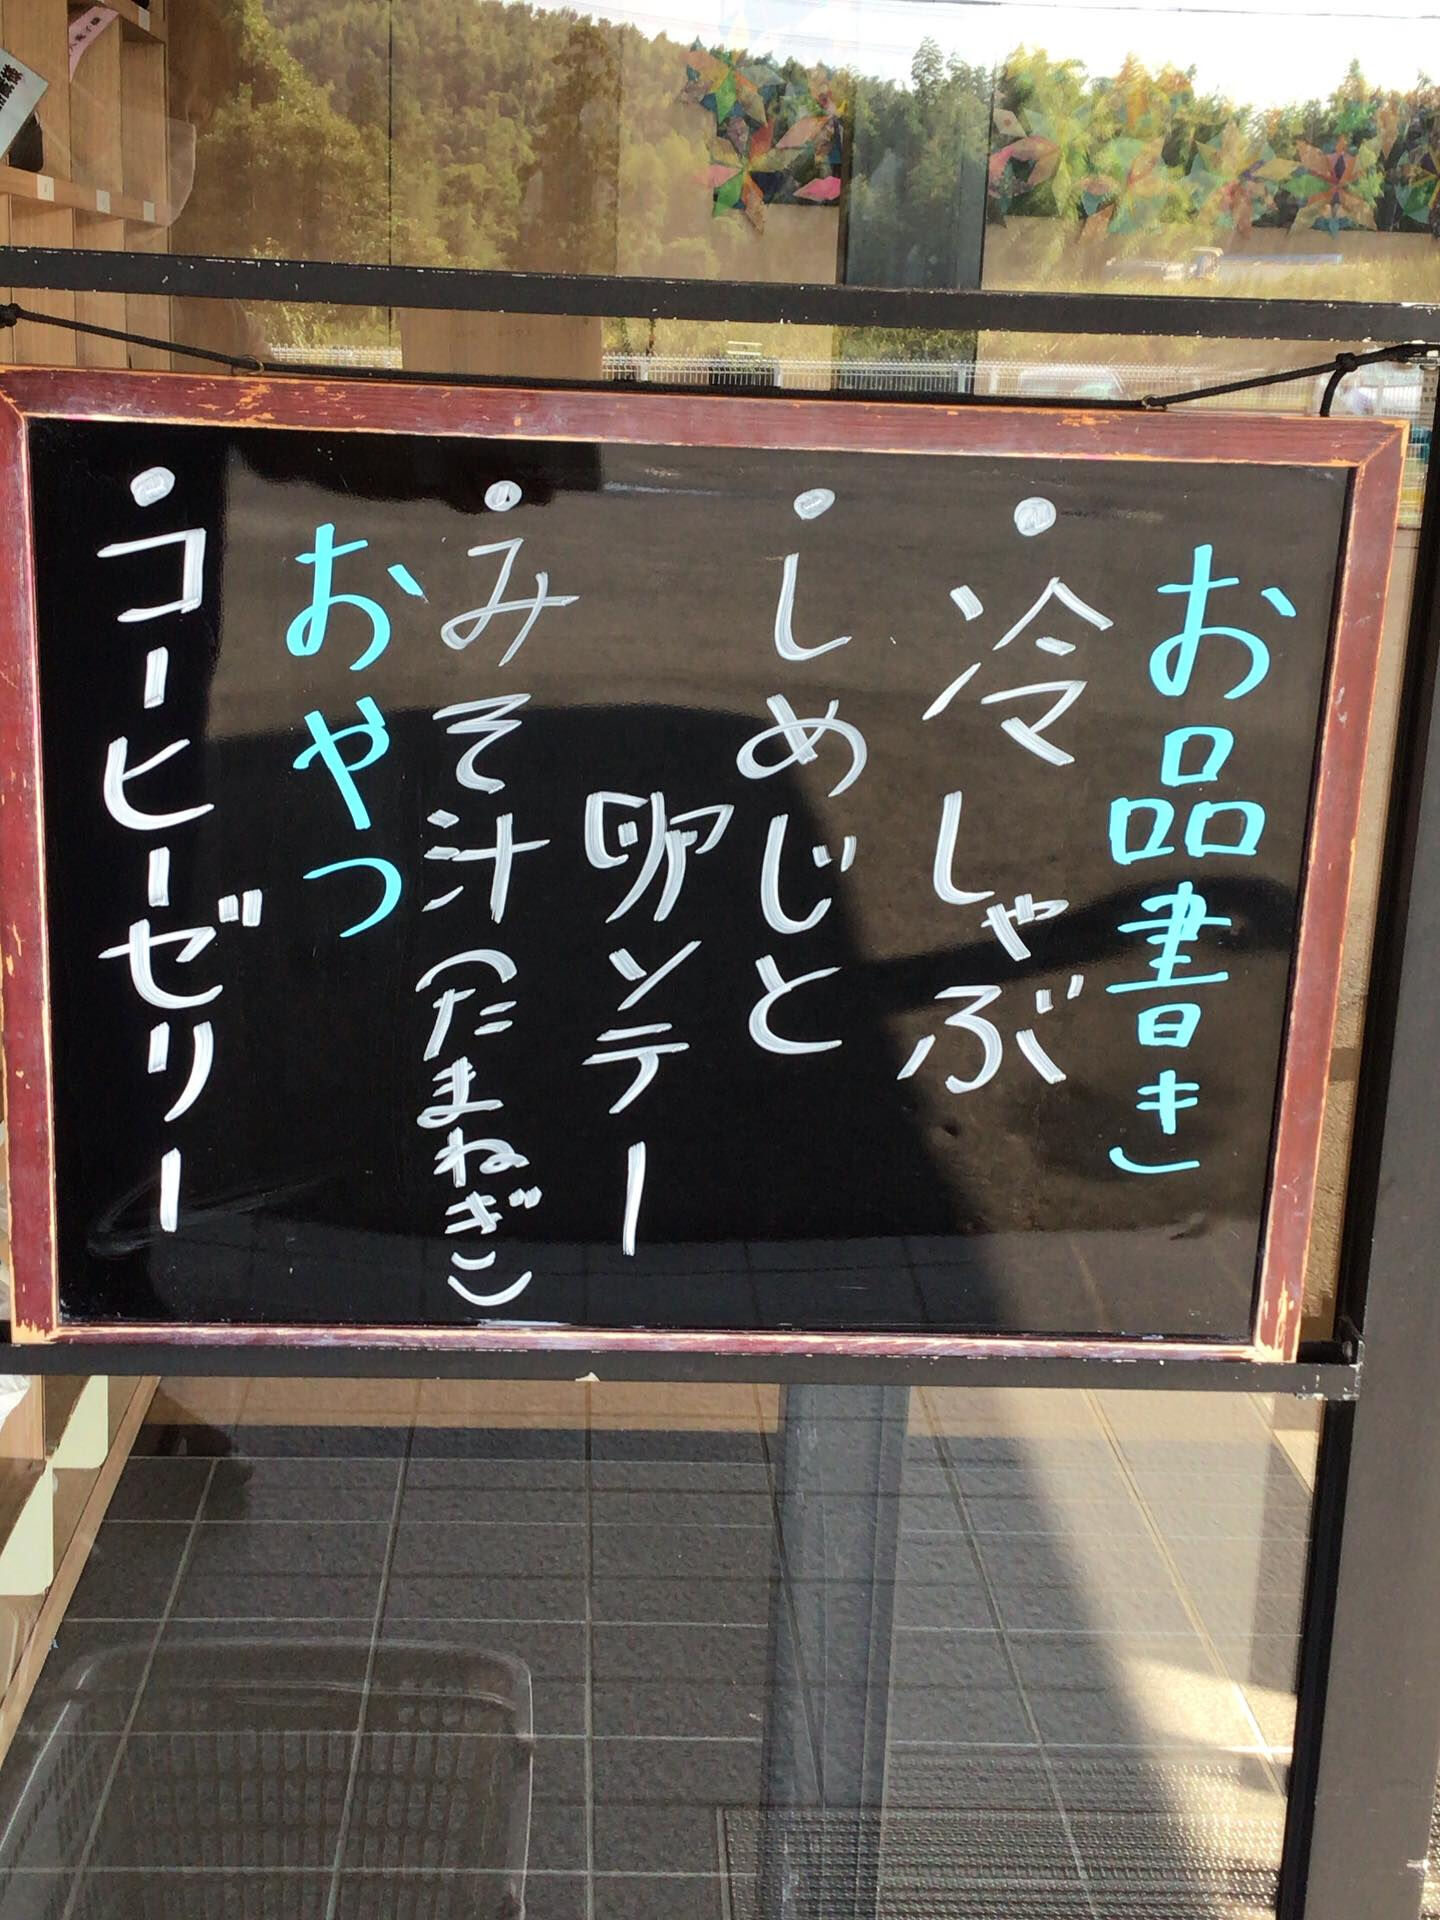 お品書き
・冷しゃぶ
・しめじと
卵ソテー
・みそ汁(たまねぎ)
おやつ
・コーヒーゼリー